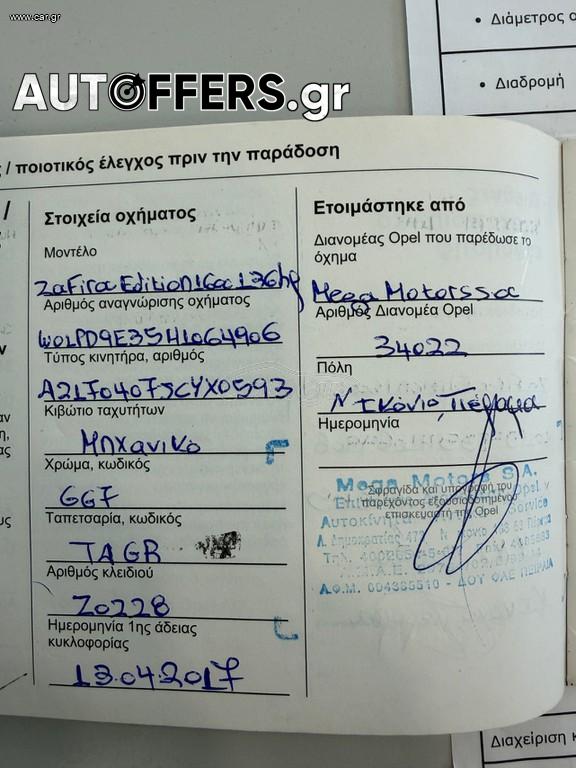 www.car.gr
AUTOFFERS.gr
• Διάμετρος
• Διαδρομή
/ ποιοτικός έλεγχος πριν την παράδοση
/
Στοιχεία οχήματος
Μοντέλο
Zafira Edition 1600 136hp
Αριθμός αναγνώρισης οχήματος
W0LPD9E35H1064906
Τύπος κινητήρα, αριθμός
A21704075CYX0593
Κιβώτιο ταχυτήτων
Μηχανικό
Χρώμα, κωδικός
GG7
Ταπετσαρία, κωδικός
TAGR
Αριθμός κλειδιού
Z0228
Ημερομηνία 1ης άδειας
κυκλοφορίας
13.04.2017
Ετοιμάστηκε από
Διανομέας Opel που παρέδωσε το
όχημα
Mega Motors sa
Αριθμός Διανομέα Opel
34022
Πόλη
Νίκαια, Πέραμα
Ημερομηνία
Mega Motors S.A.
Σφραγίδα και υπογραφή του
παρέχοντος εξουσιοδοτημένου
επισκευαστή της Opel
Αυτοκίνητα Service
Λ. Δημοκρατίας
Α.Φ.Μ. - ΔΟΥ ΦΑΕ ΠΕΙΡΑΙΑ
Διαχείριση